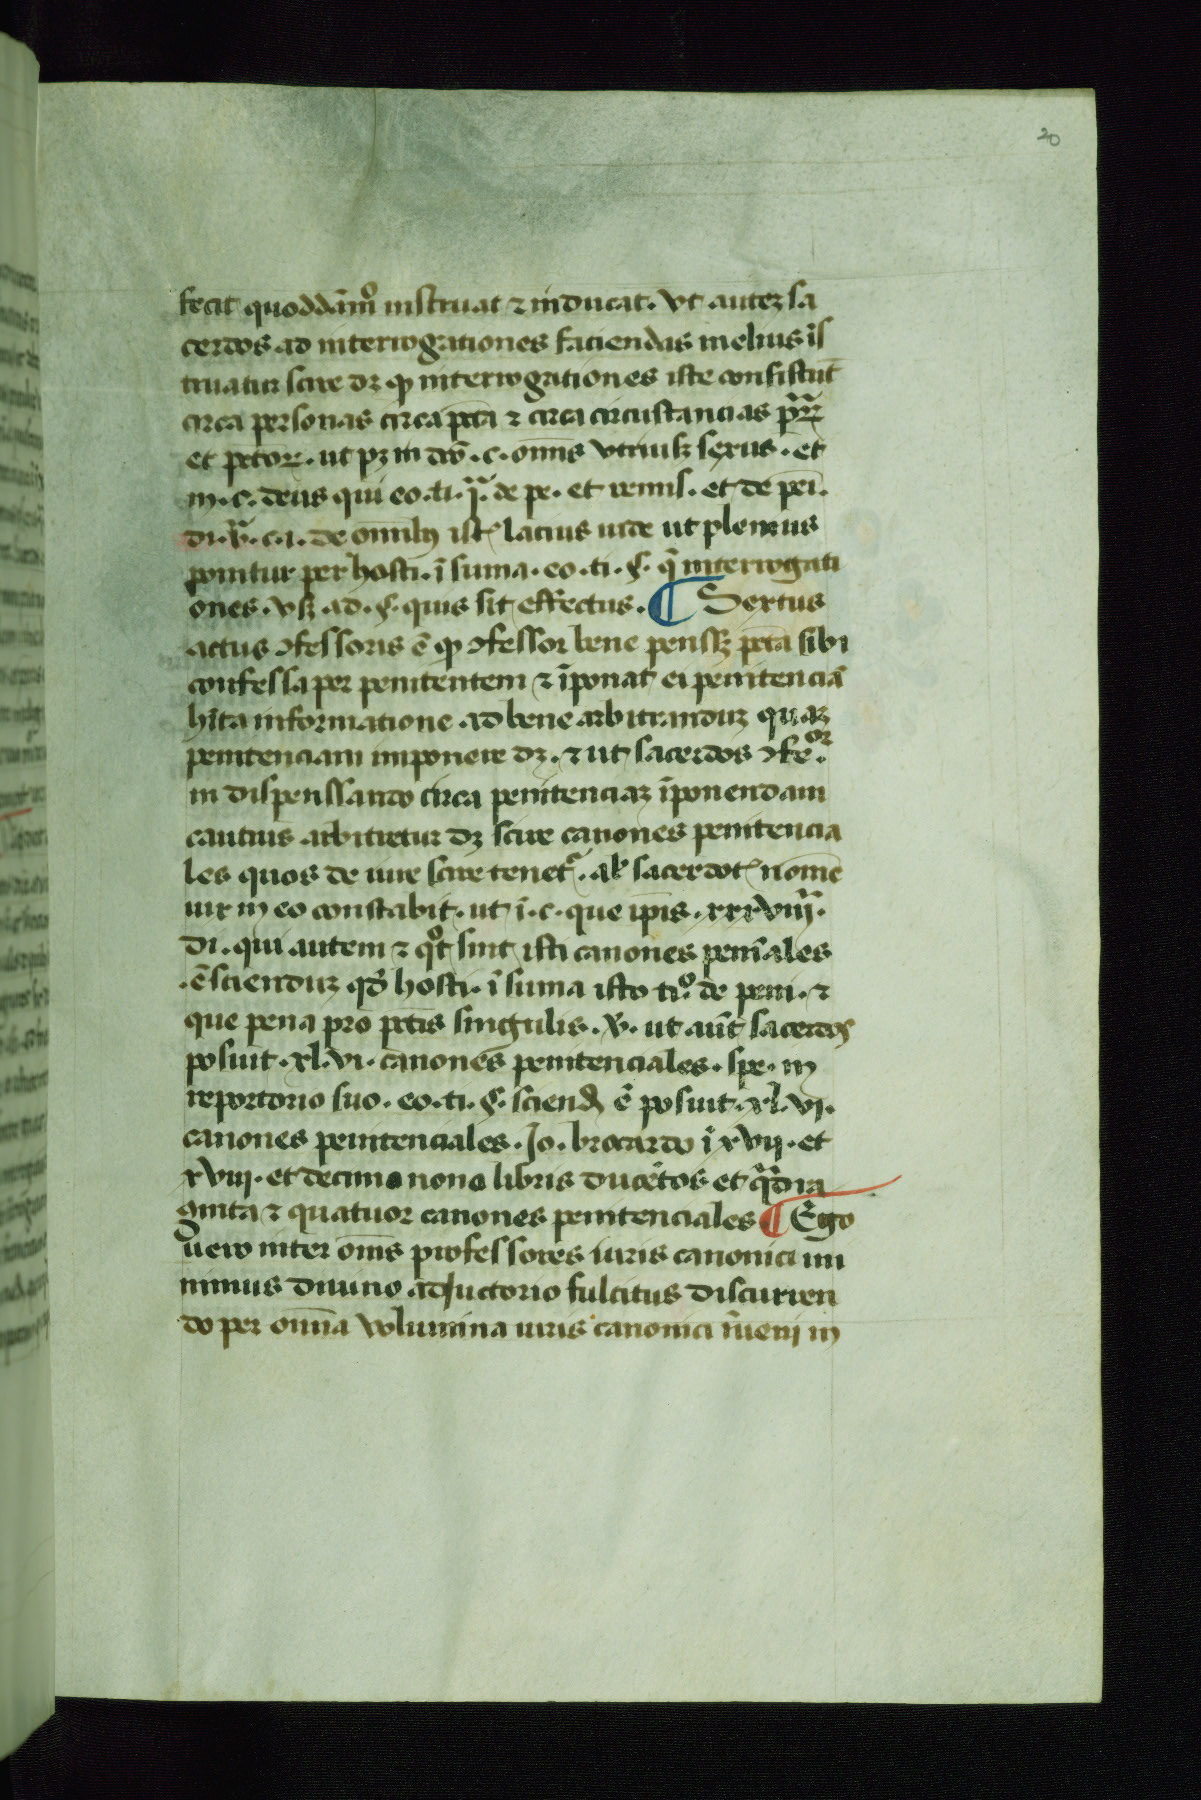 20
fecit quoddāmͦ instruat ⁊ inducat. vt auteꝫ sa
cerdos ad interrogationes faciendas melius īs
truatur scire dꝫ ꝙ interrogationes iste consistūt
circa personas circa pctā ⁊ circa circūstancias
et pctoꝝ. ut pꝫ in dco. c. omīs vtriusꝫ sexus. et
in. c. deus qui eo. ti. de pe. et remis. et de peī.
di. v. c. i. de omībꝫ istꝭ lacius ut plenius
ponitur per hosti. ī suma. eo. ti. §. interrogati
ones. vsꝫ ad. §. quis sit effectus. ¶ Sextus
actus ꝯfessoris ē ꝙ ꝯfessor bene pensꝫ pctā sibi
confessa per penitentem ⁊ īponat ei penitenciā
hīta informatione ad bene arbitranduꝫ quaꝫ
penitenciam imponere dꝫ. ⁊ ut sacerdos ꝯfe.oꝛ
in dispenssando circa penitenciaꝫ īponendam
cautius arbitretur dꝫ scire canones penitencia
les quos de iure scire tenetᷣ. alꝭ sacerdotꝭ nomē
uix in eo constabit. ut ī. c. que ipīs. xxxviiiª.
di. qui autem ⁊ qͦt sint isti canones penīales
ē scienduꝫ qđ hosti. ī suma isto tiͦ. de peni. ⁊
que pena pro pctīs singulis. v. ut aūt sacerdos
posuit. xl. vi. canones penitenciales. spe. in
reportorio suo. eo. ti. §. sciendꝫ ē posuit. xl. vi.
canones penitenciales. Jo. brocardo ī xvii. et
xviii. et decimo nono libris ducētos et qᷓdra
ginta ⁊ quatuor canones penitenciales ¶ Ego
vero inter omēs professores iuris canonici mi
nimus diuino adiuctorio fulcitus discurren
do per omīa volumina iuris canonici īueni in